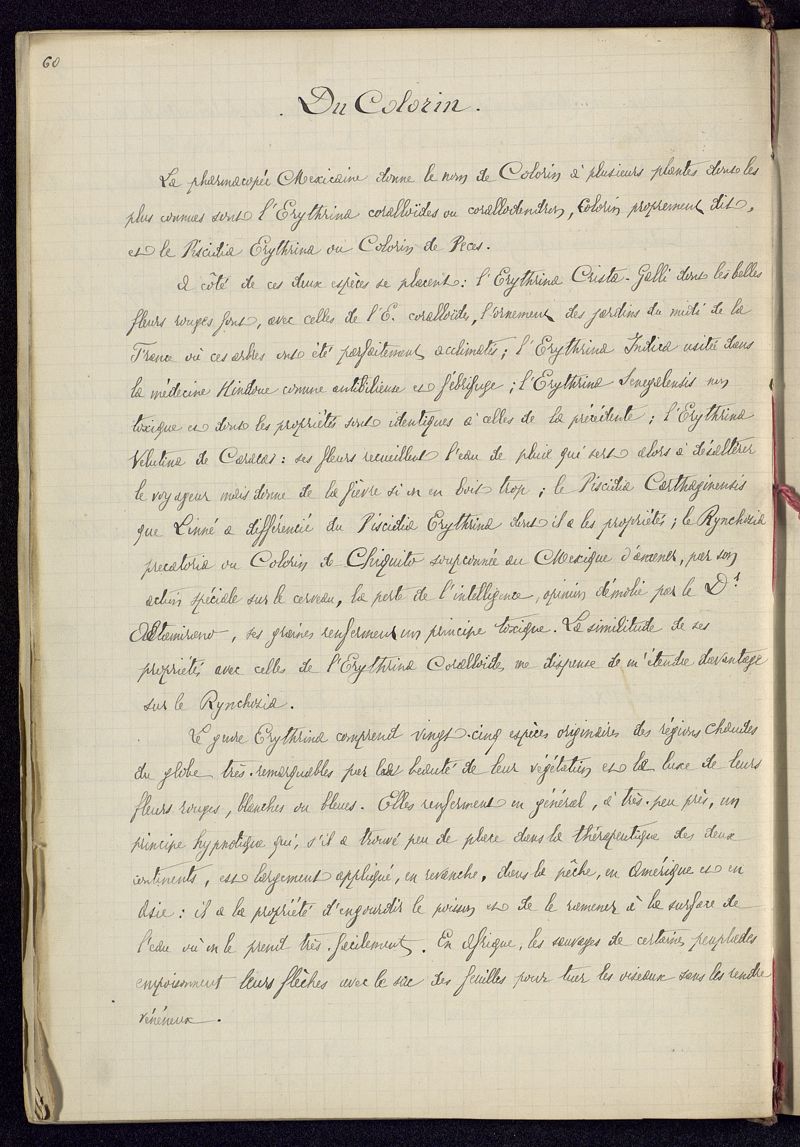 60
. Du Colorin .
La pharmacopée Mexicaine donne le nom de Colorin à plusieurs plantes dont les
plus connues sont l'Erythrina coralloïdes ou corallodendron, Colorin proprement dit,
et le Piscidia Erythrina ou Colorin de Peces.
A côté de ces deux espèces se placent : l'Erythrina Crista-Galli dont les belles
fleurs rouges font, avec celles de l'E. coralloïdes, l'ornement des jardins du midi de la
France où ces arbres ont été parfaitement acclimatés ; l'Erythrina Indica usitée dans
la médecine Hindoue comme antibilieuse et fébrifuge ; l'Erythrina Senegalensis non
toxique et dont les propriétés sont identiques à celles de la précédente ; l'Erythrina
Velutina de Caracas : ses fleurs recueillent l'eau de pluie qui sert alors à désaltérer
le voyageur mais donne de la fièvre si on en boit trop ; le Piscidia Carthaginensis
que Linné a différencié du Piscidia Erythrina dont il a les propriétés ; le Rynchosia
precatoria ou Colorin de Chiquito soupçonnée au Mexique d'amener, par son
action spéciale sur le cerveau, la perte de l'intelligence, opinion démolie par le Dr
Altamirano, ses graines renferment un principe toxique. La similitude de ses
propriétés avec celles de l'Erythrina Coralloïdes me dispense de m'étendre davantage
sur le Rynchosia.
Le genre Erythrina comprend vingt-cinq espèces originaires des régions chaudes
du globe très-remarquables par la beauté de leur végétation et la luxe de leurs
fleurs rouges, blanches ou bleues. Elles renferment en général, à très-peu près, un
principe hypnotique qui, s'il a trouvé peu de place dans la thérapeutique des deux
continents, est largement appliqué, en revanche, dans la pêche, en Amérique et en
Asie : il a la propriété d'engourdir le poisson et de le ramener à la surface de
l'eau où on le prend très-facilement. En Afrique, les sauvages de certaines peuplades
empoisonnent leurs flèches avec le suc des feuilles pour tuer les oiseaux sans les rendre
vénéneux.